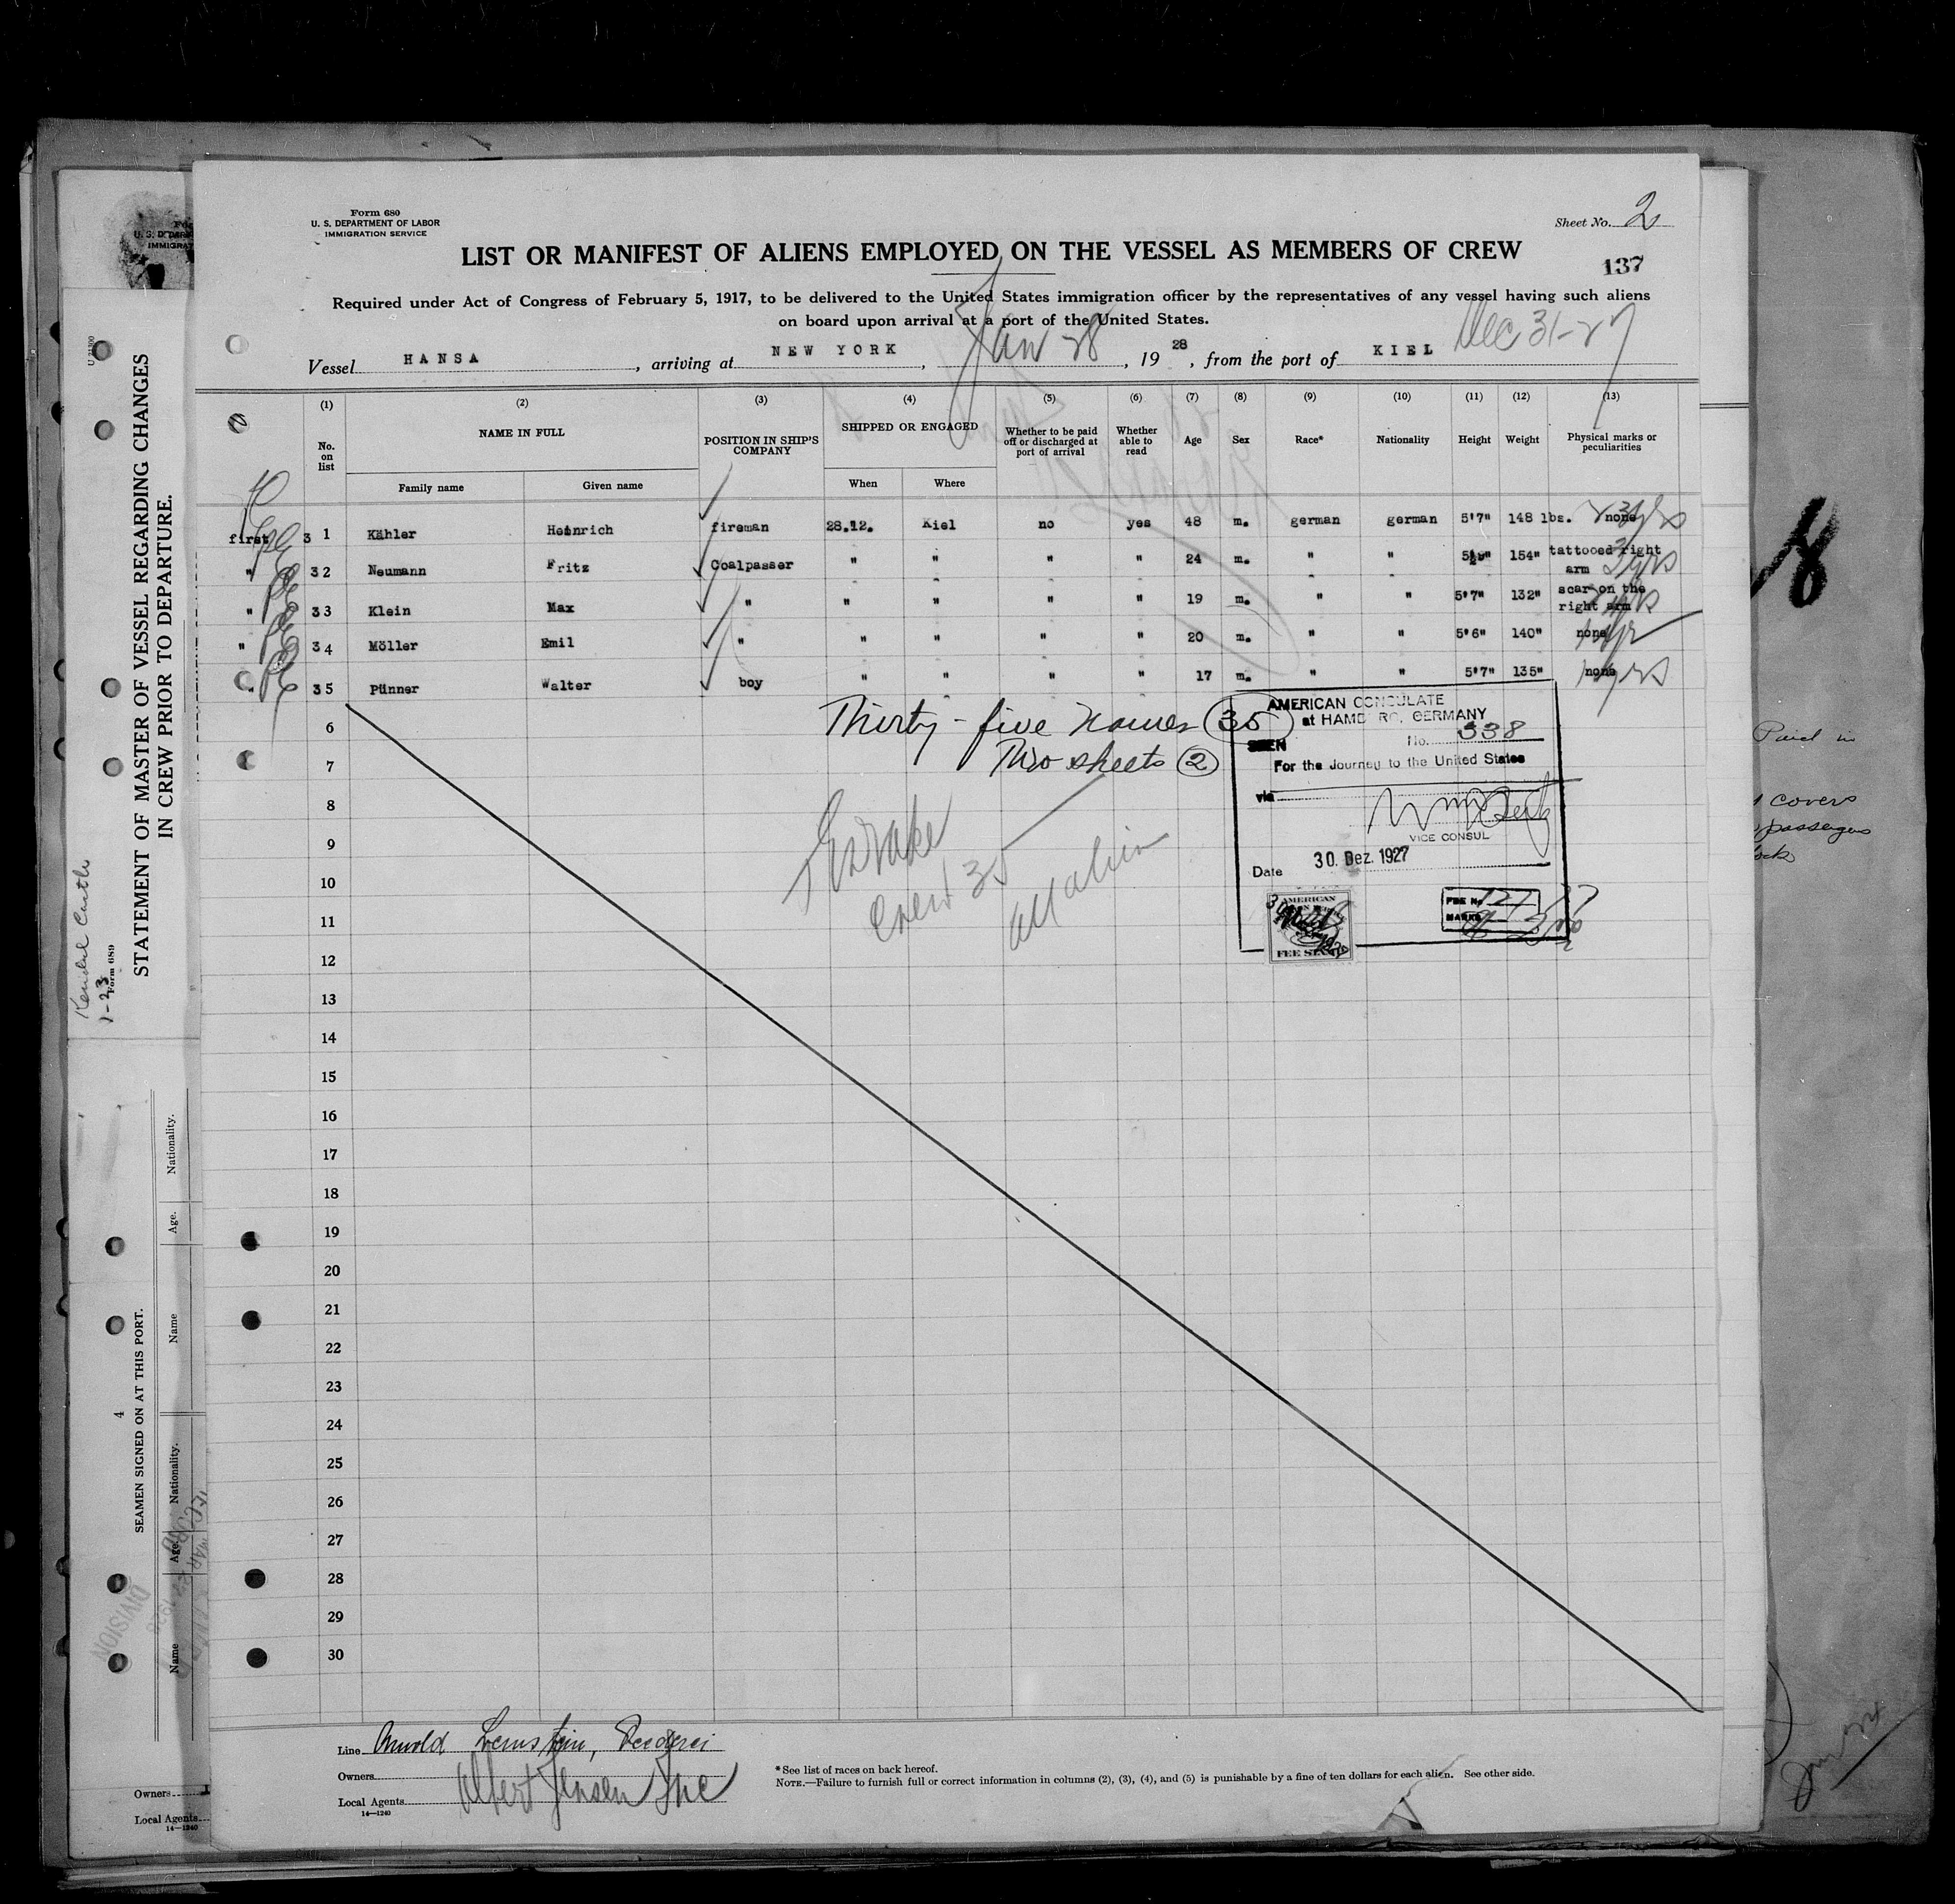 Form 680
U. S. DEPARTMENT OF LABOR
IMMIGRATION SERVICE
Sheet No. 2
LIST OR MANIFEST OF ALIENS EMPLOYED ON THE VESSEL AS MEMBERS OF CREW
137
Required under Act of Congress of February 5, 1917, to be delivered to the United States immigration officer by the representatives of any vessel having such aliens
on board upon arrival at a port of the United States.
Dec 31-27
Vessel HANSA, arriving at NEW YORK, Jan 28, 1928, from the port of KIEL
(1) (2) (3) (4) (5) (6) (7) (8) (9) (10) (11) (12) (13)
No. on list NAME IN FULL POSITION IN SHIP'S COMPANY SHIPPED OR ENGAGED Whether to be paid off or discharged at port of arrival Whether able to read Age Sex Race* Nationality Height Weight Physical marks or peculiarities
Family name Given name When Where
first 3 1 Kähler Heinrich fireman 28.12. Kiel no yes 48 m. german german 5'7" 148 lbs. none 3yrs
" 3 2 Neumann Fritz Coalpasser " " " " 24 m. " " 154" tattooed right arm 3yrs
" 3 3 Klein Max " " " " " 19 m. " " 5'7" 132" scar on the right arm
" 3 4 Möller Emil " " " " " 20 m. " " 5'6" 140" none
" 3 5 Pünner Walter boy " " " " 17 m. " " 5'7" 135" none
6
7
8
9
10
11
12
13
14
15
16
17
18
19
20
21
22
23
24
25
26
27
28
29
30
Thirty-five names 35
Two sheets 2
Crew 35
all alien
AMERICAN CONSULATE
at HAMB RG, GERMANY
SEEN No. 338
For the Journey to the United States
via
VICE CONSUL
Date 30. Dez. 1927
AMERICAN
FEE STAMP
FEE No
MARKS
Line Arnold Bernstein, Reederei
Owners
Local Agents Albert Jensen Inc
14—1240
*See list of races on back hereof.
NOTE.—Failure to furnish full or correct information in columns (2), (3), (4), and (5) is punishable by a fine of ten dollars for each alien. See other side.
U. S. DEPAR
IMMIGRAT
STATEMENT OF MASTER OF VESSEL REGARDING CHANGES
IN CREW PRIOR TO DEPARTURE.
Form 689
Kendal Castle
1-23
SEAMEN SIGNED ON AT THIS PORT.
4
Nationality.
Age.
Name
Nationality.
Age.
Name
DIVISION
Owners
Local Agents
14—1240
8
Paid in
covers
passengers